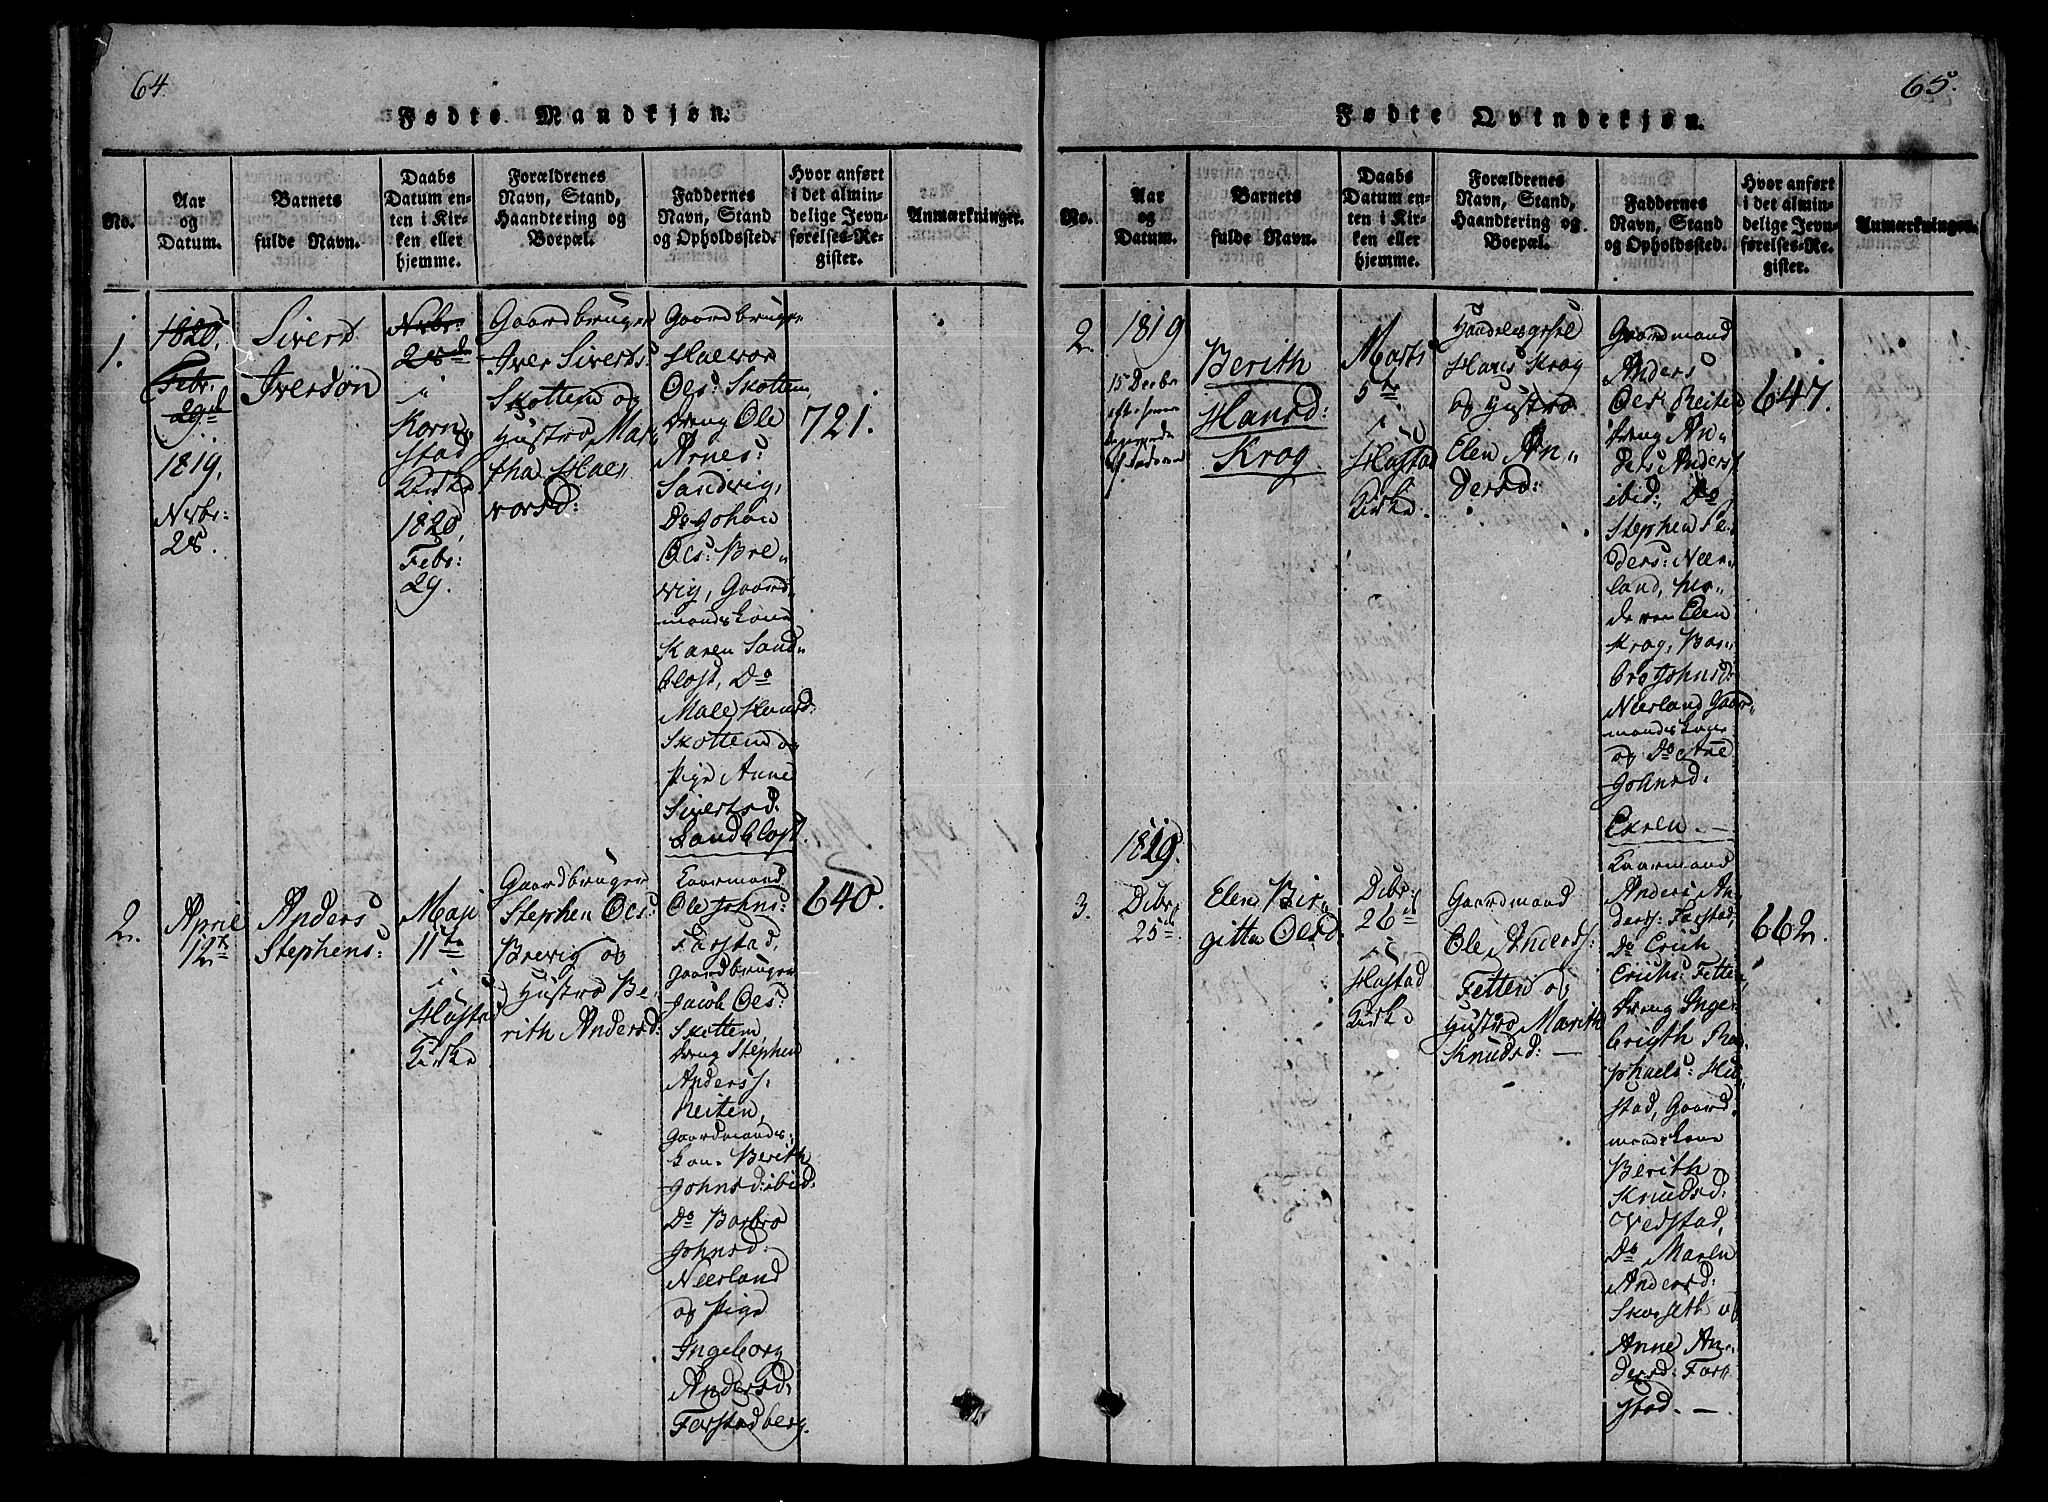 64.
Fødte Mandkjøn.
No.
Aar
og
Datum.
Barnets
fulde Navn.
Daabs
Datum en-
ten i Kir-
ken eller
hjemme.
Forældrenes
Navn, Stand,
Haandtering og
Boepæl.
Faddernes
Navn, Stand
og Opholdssted.
Hvor anført
i det almin-
delige Jevn-
førelses-Re-
gister.
Anmærkninger.
1.
1820,
Febr.
29de
1819,
Nvbr:
28.
Sivert
Iversøn
Nvbr:
28d
i
Korn-
stad
Kirke
1820,
Febr:
29.
Gaardbruger
Iver Siverts:
Skottem og
Hustro Mar-
tha Hae-
vorsd:
Gaardbruger
Haevor
Oes: Skottem,
Dreng Ole
Arnes:
Sandvig,
Do Johan
Oes: Bre-
vig, Gaard-
mandskone
Karen Sand-
blost, Do
Male Hansd:
Skottem og
Pige Anne
Sivertsd:
Sandblost.
721.
2.
April
12te
Anders
Stephens:
Maji
11te
i
Hustad
Kirke
Gaardbruger
Stephen Oes:
Brevig og
Hustro Be-
rith Andersd:
Gaardmand
Ole Johns:
Farstad,
Gaardbruger
Jacob Oes:
Skottem
Dreng Stephen
Anderss:
Reiten,
Gaardmands-
kone Berith
Johnsd: ibid:
Do Barbro
Johnsd:
Neerland
og Pige
Ingeborg
Andersd:
Farstadberg.
640.
65.
Fødte Qvindekjøn.
No.
Aar
og
Datum.
Barnets
fulde Navn.
Daabs
Datum en-
ten i Kir-
ken eller
hjemme.
Forældrenes
Navn, Stand,
Haandtering og
Boepæl.
Faddernes
Navn, Stand
og Opholdssted.
Hvor anført
i det almin-
delige Jevn-
førelses-Re-
gister.
Anmærkninger.
2.
1819
15 Decbr
Berith
Hansd:
Krog.
Marts
5te
i
Hustad
Kirke.
Handelsgesel
Hans Krog
og Hustro
Elen An-
dersd:
Gaardmand
Anders
Oes: Reiten
Dreng An-
ders Anders:
ibid: Do
Stephen Pe-
ders: Neer-
land, Ma-
dame Elen
Krog, Bar-
bro Johnsd:
Neerland Gaard-
mandskone
og Do Ane
Johnsd:
Exren. —
647.
1819.
3.
Dcbr
25de
Elen Bir-
gitta Oesd:
Dcbr:
26de
i
Hustad
Kirke
Gaardmand
Ole Anderss:
Fetten og
Hustro Marith
Knudsd: —
Gaardmand
Anders An-
derss: Farstad,
Do Erich
Erichs: Fetten
Dreng Inge-
brigth Ra-
phaels: Hu-
stad, Gaard-
mandskone
Berith
Knudsd:
Vedstad,
Do Maren
Andersd:
Skarseth og
Anne An-
dersd: Far-
stad. —
662.